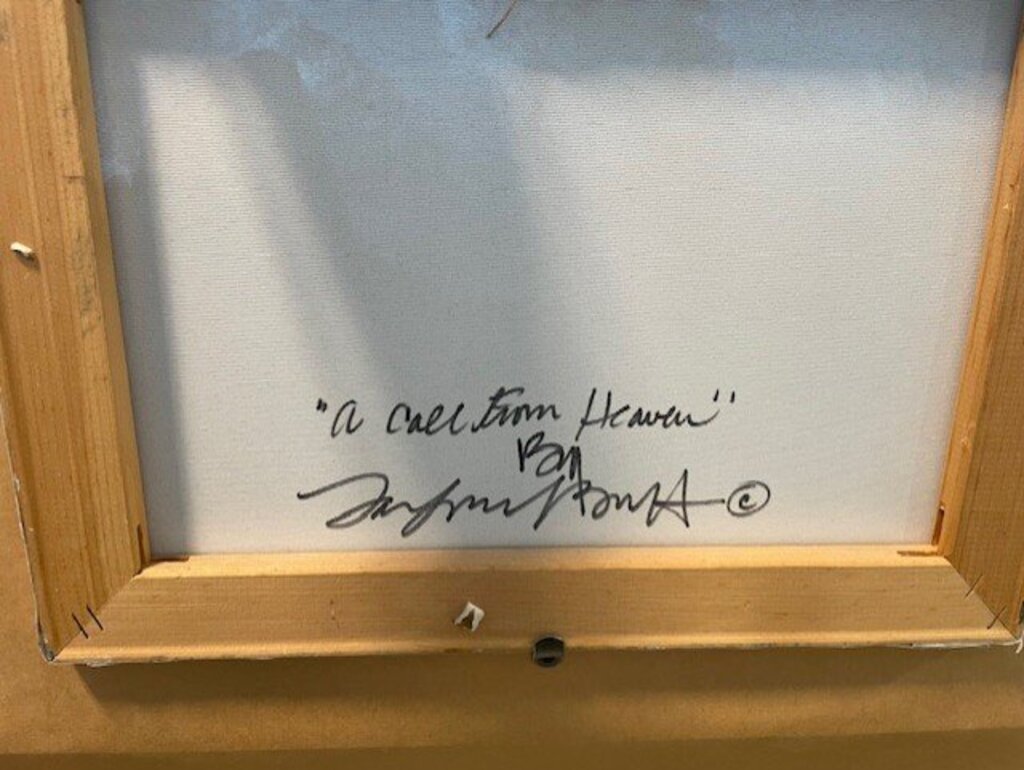 "A Call From Heaven"
By
©